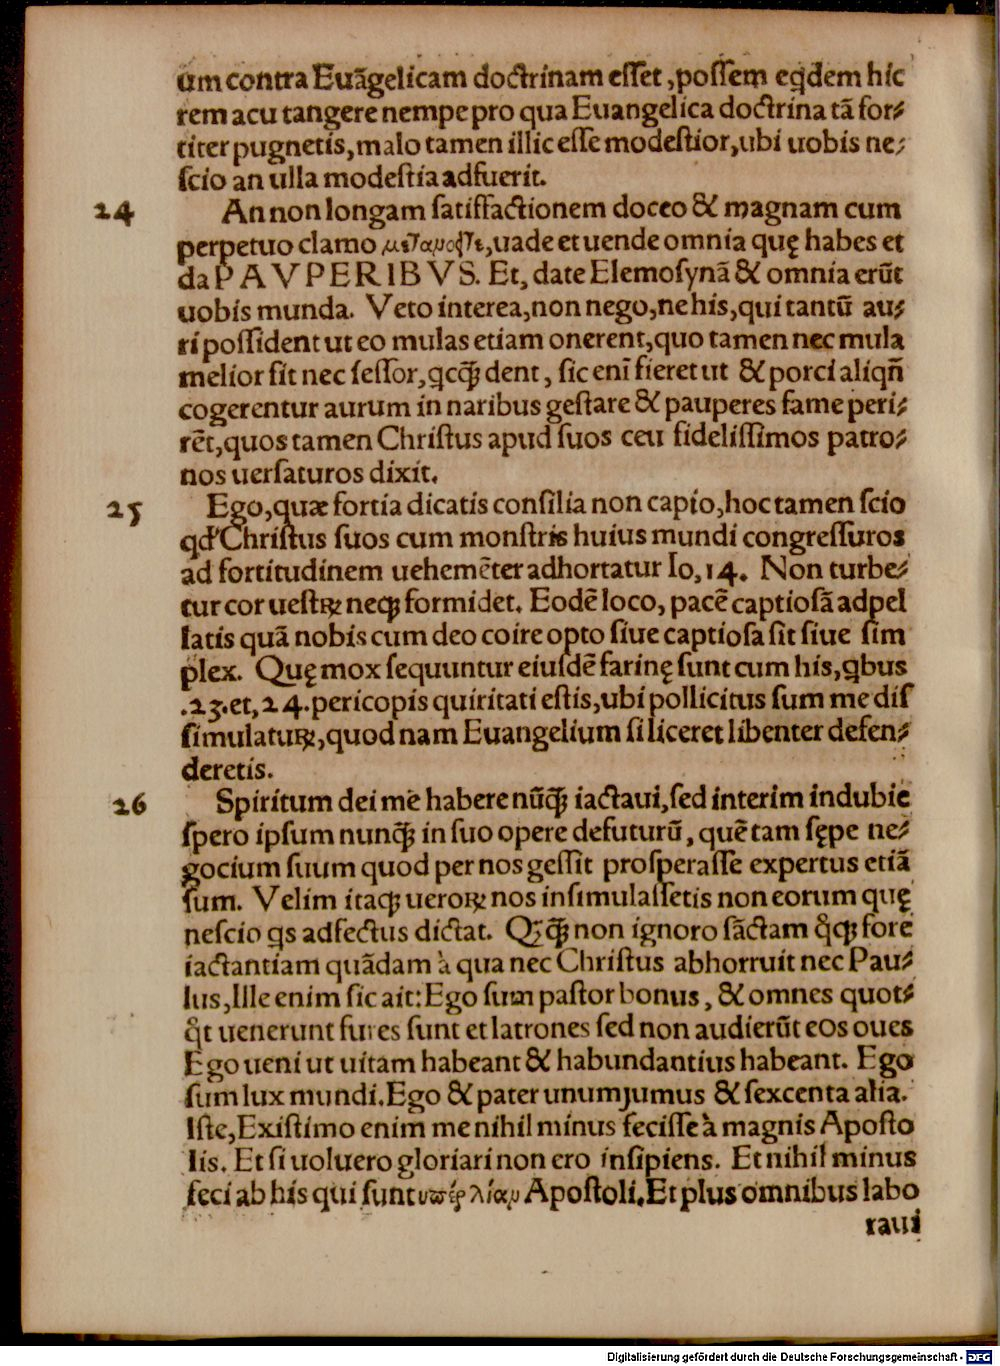 um contra Euãgelicam doctrinam eſſet, poſſem eqdem hic
rem acu tangere nempe pro qua Euangelica doctrina tã for⸗
titer pugnetis, malo tamen illic eſſe modeſtior, ubi uobis ne⸗
ſcio an ulla modeſtia adfuerit.
24 An non longam ſatiſfactionem doceo & magnam cum
perpetuo clamo μετανοεῖτε, uade et uende omnia quę habes et
da PAVPERIBVS. Et, date Elemoſynã & omnia erũt
uobis munda. Veto interea, non nego, ne his, qui tantũ au⸗
ri poſſident ut eo mulas etiam onerent, quo tamen nec mula
melior ſit nec ſeſſor, qcꝗ̃ dent, ſic enĩ fieret ut & porci aliqñ
cogerentur aurum in naribus geſtare & pauperes fame peri⸗
rẽt, quos tamen Chriſtus apud ſuos ceu fideliſſimos patro⸗
nos uerſaturos dixit.
25 Ego, quæ fortia dicatis conſilia non capio, hoc tamen ſcio
qđ Chriſtus ſuos cum monſtris huius mundi congreſſuros
ad fortitudinem uehemẽter adhortatur Io, 14. Non turbe⸗
tur cor ueſtꝝ neqꝫ formidet. Eodẽ loco, pacẽ captioſã adpel
latis quã nobis cum deo coire opto ſiue captioſa ſit ſiue ſim
plex. Quę mox ſequuntur eiuſdẽ farinę ſunt cum his, ꝗbus
.23. et, 24. pericopis quiritati eſtis, ubi pollicitus ſum me diſ
ſimulatuꝝ, quod nam Euangelium ſi liceret libenter defen⸗
deretis.
26 Spiritum dei me habere nũꝗ̃ iactaui, ſed interim indubie
ſpero ipſum nunꝗ̃ in ſuo opere defuturũ, quẽ tam ſępe ne⸗
gocium ſuum quod per nos geſſit proſperaſſe expertus etiã
ſum. Velim itaqꝫ ueroꝝ nos inſimulaſſetis non eorum quę
neſcio ꝗs adfectus dictat. Qꝗ̃ non ignoro ſãctam q̊qꝫ fore
iactantiam quãdam à qua nec Chriſtus abhorruit nec Pau⸗
lus, Ille enim ſic ait: Ego ſum paſtor bonus, & omnes quot⸗
q̊t uenerunt fures ſunt et latrones ſed non audierũt eos oues
Ego ueni ut uitam habeant & habundantius habeant. Ego
ſum lux mundi. Ego & pater unum ſumus & ſexcenta alia.
Iſte, Exiſtimo enim me nihil minus feciſſe à magnis Apoſto
lis. Et ſi uoluero gloriari non ero inſipiens. Et nihil minus
feci ab his qui ſunt ὑπέρ λίαν Apoſtoli. Et plus omnibus labo
raui
Digitalisierung gefördert durch die Deutsche Forschungsgemeinschaft - DFG